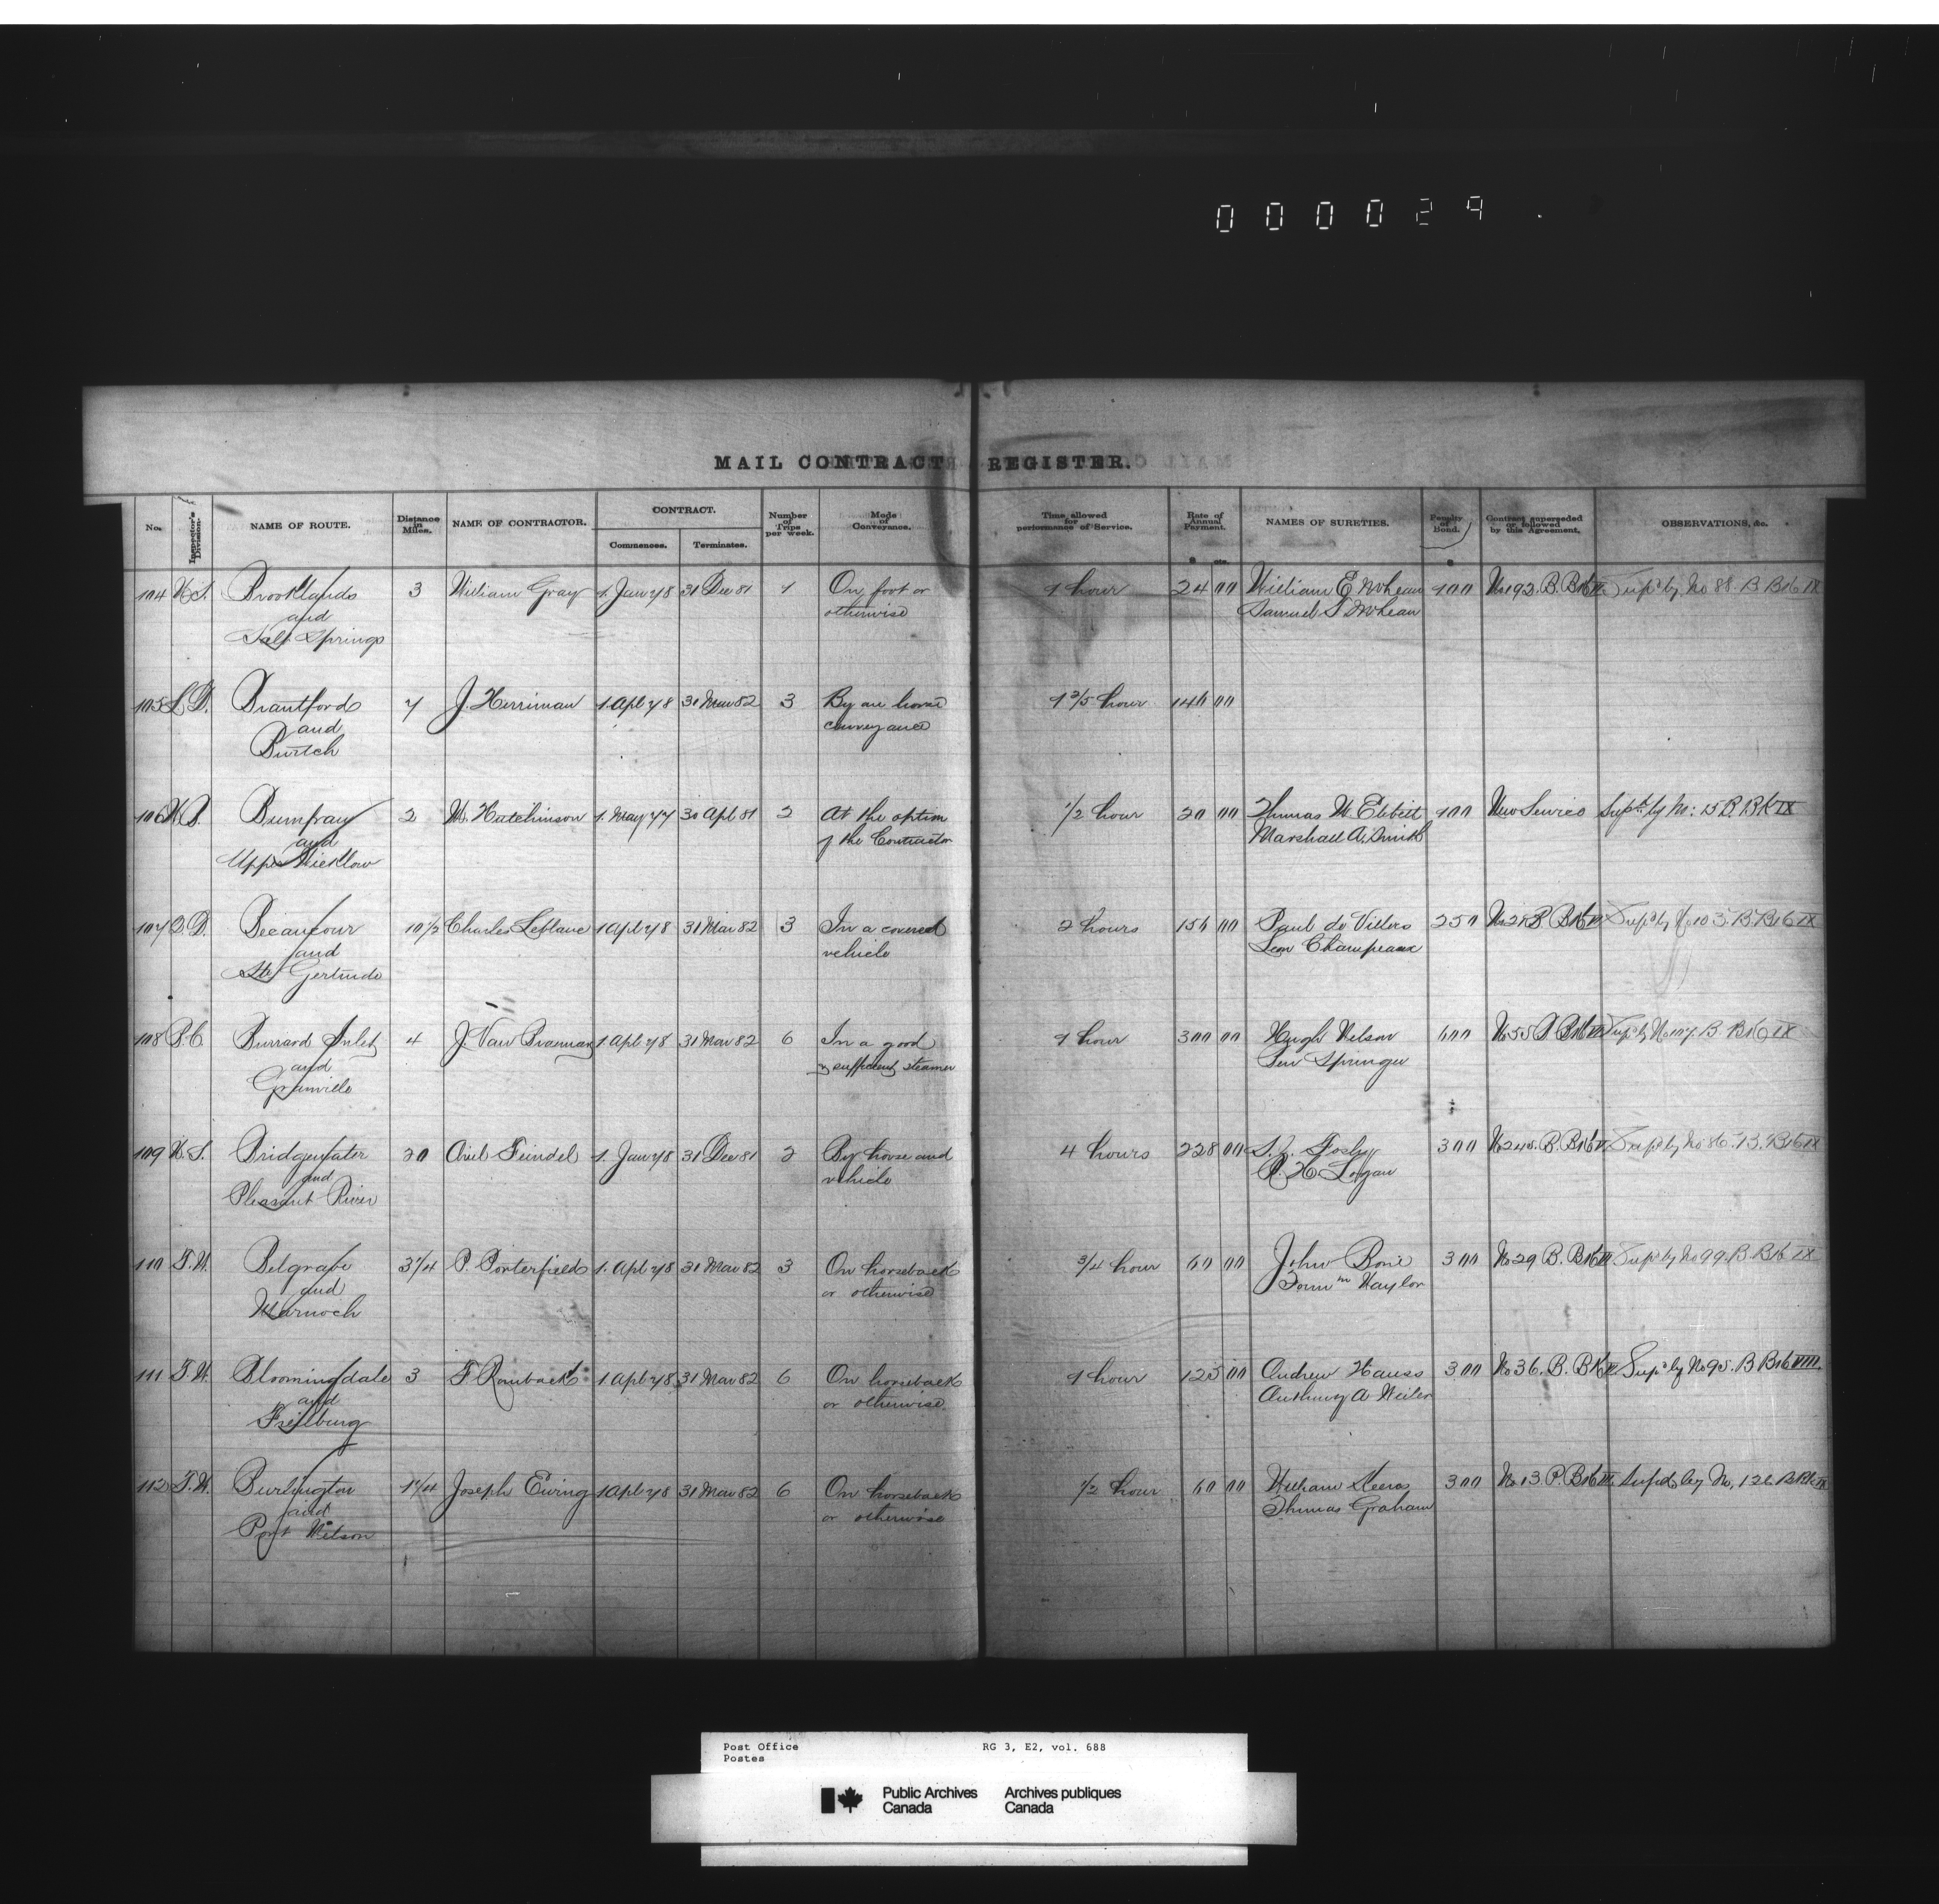 000029
MAIL CONTRACT REGISTER.
No.
Inspector's Division.
NAME OF ROUTE.
Distance in Miles.
NAME OF CONTRACTOR.
CONTRACT.
Commences.
Terminates.
Number of Trips per week.
Mode of Conveyance.
Time allowed for performance of Service.
Rate of Annual Payment.
NAMES OF SURETIES.
Penalty of Bond.
Contract superseded or followed by this Agreement.
OBSERVATIONS, &c.
104 N.S. Brooklands 3 William Gray 1. Jany 78 31 Dec 81 1 On foot or 1 hour 24 00 William E McLean 100 No 192. B. Bk Sup'd by No 88. B Bk IX
and otherwise Samuel S McLean
Salt Springs
105 L.D. Brantford 7 J. Herriman 1 Apl 78 31 Mar 82 3 By one horse 1 2/5 hour 140 00
and conveyance
Burtch
106 N.B. Bumfrau 2 W. Hutchinson 1. May 77 30 Apl 81 2 At the option 1/2 hour 20 00 Thomas W. Ebbett 100 New Service Sup'd by No: 15 B. Bk IX
and of the Contractor Marshall A. Smith
Upper Wicklow
107 Q.D. Becancour 10 1/2 Charles Leblanc 1 Apl 78 31 Mar 82 3 In a covered 2 hours 156 00 Paul de Villers 250 No 28 B. Bk Sup'd by No 103. B. Bk IX
and vehicle Leon Champeaux
Ste Gertrude
108 B.C. Burrard Inlet 4 J. Van Bramer 1 Apl 78 31 Mar 82 6 In a good 1 hour 300 00 Hugh Nelson 600 No 55 B Bk Sup'd by No 107. B. Bk IX
and & sufficient steamer Ben Springer
Granville
109 N.S. Bridgewater 20 Ariel Feindel 1. Jany 78 31 Dec 81 2 By horse and 4 hours 228 00 300 No 245. B. Bk Sup'd by No 86. B. Bk IX
and vehicle R. H. Logan
Pleasant River
110 T.W. Belgrave 3 1/4 P. Porterfield 1. Apl 78 31 Mar 82 3 On horseback 3/4 hour 60 00 John Bone 300 No 29 B. Bk Sup'd by No 99. B. Bk IX
and or otherwise Naylor
Marnoch
111 T.W. Bloomingdale 3 F Rombach 1 Apl 78 31 Mar 82 6 On horseback 1 hour 125 00 Andrew Hauss 300 No 36. B. Bk Sup'd by No 95. B Bk VIIII.
and or otherwise Anthony A Weiler
Freiburg
112 T.W. Burlington 1 1/4 Joseph Ewing 1 Apl 78 31 Mar 82 6 On horseback 1/2 hour 60 00 William Keens 300 No 13. P. Bk Sup'd by No. 126 B. Bk IX
and or otherwise Thomas Graham
Port Nelson
Post Office RG 3, E2, vol. 688
Postes
Public Archives Archives publiques
Canada Canada